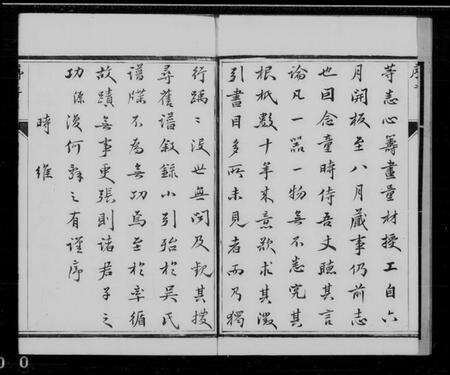 等悉心籌畫量材授工自六
月開板至八月蕆事仍前志
也回念童時侍吾丈聽其言
論凡一器一物無不悉究其
根柢數十年來意欲求其澂
引書目多所未見者而乃獨
行踽〻沒世無聞及觀其授
尋舊譜敘錄小引殆於吳氏
譜牒不為無功焉至於率循
故蹟無事更張則諸君子之
功源後何辭之有謹序
時維